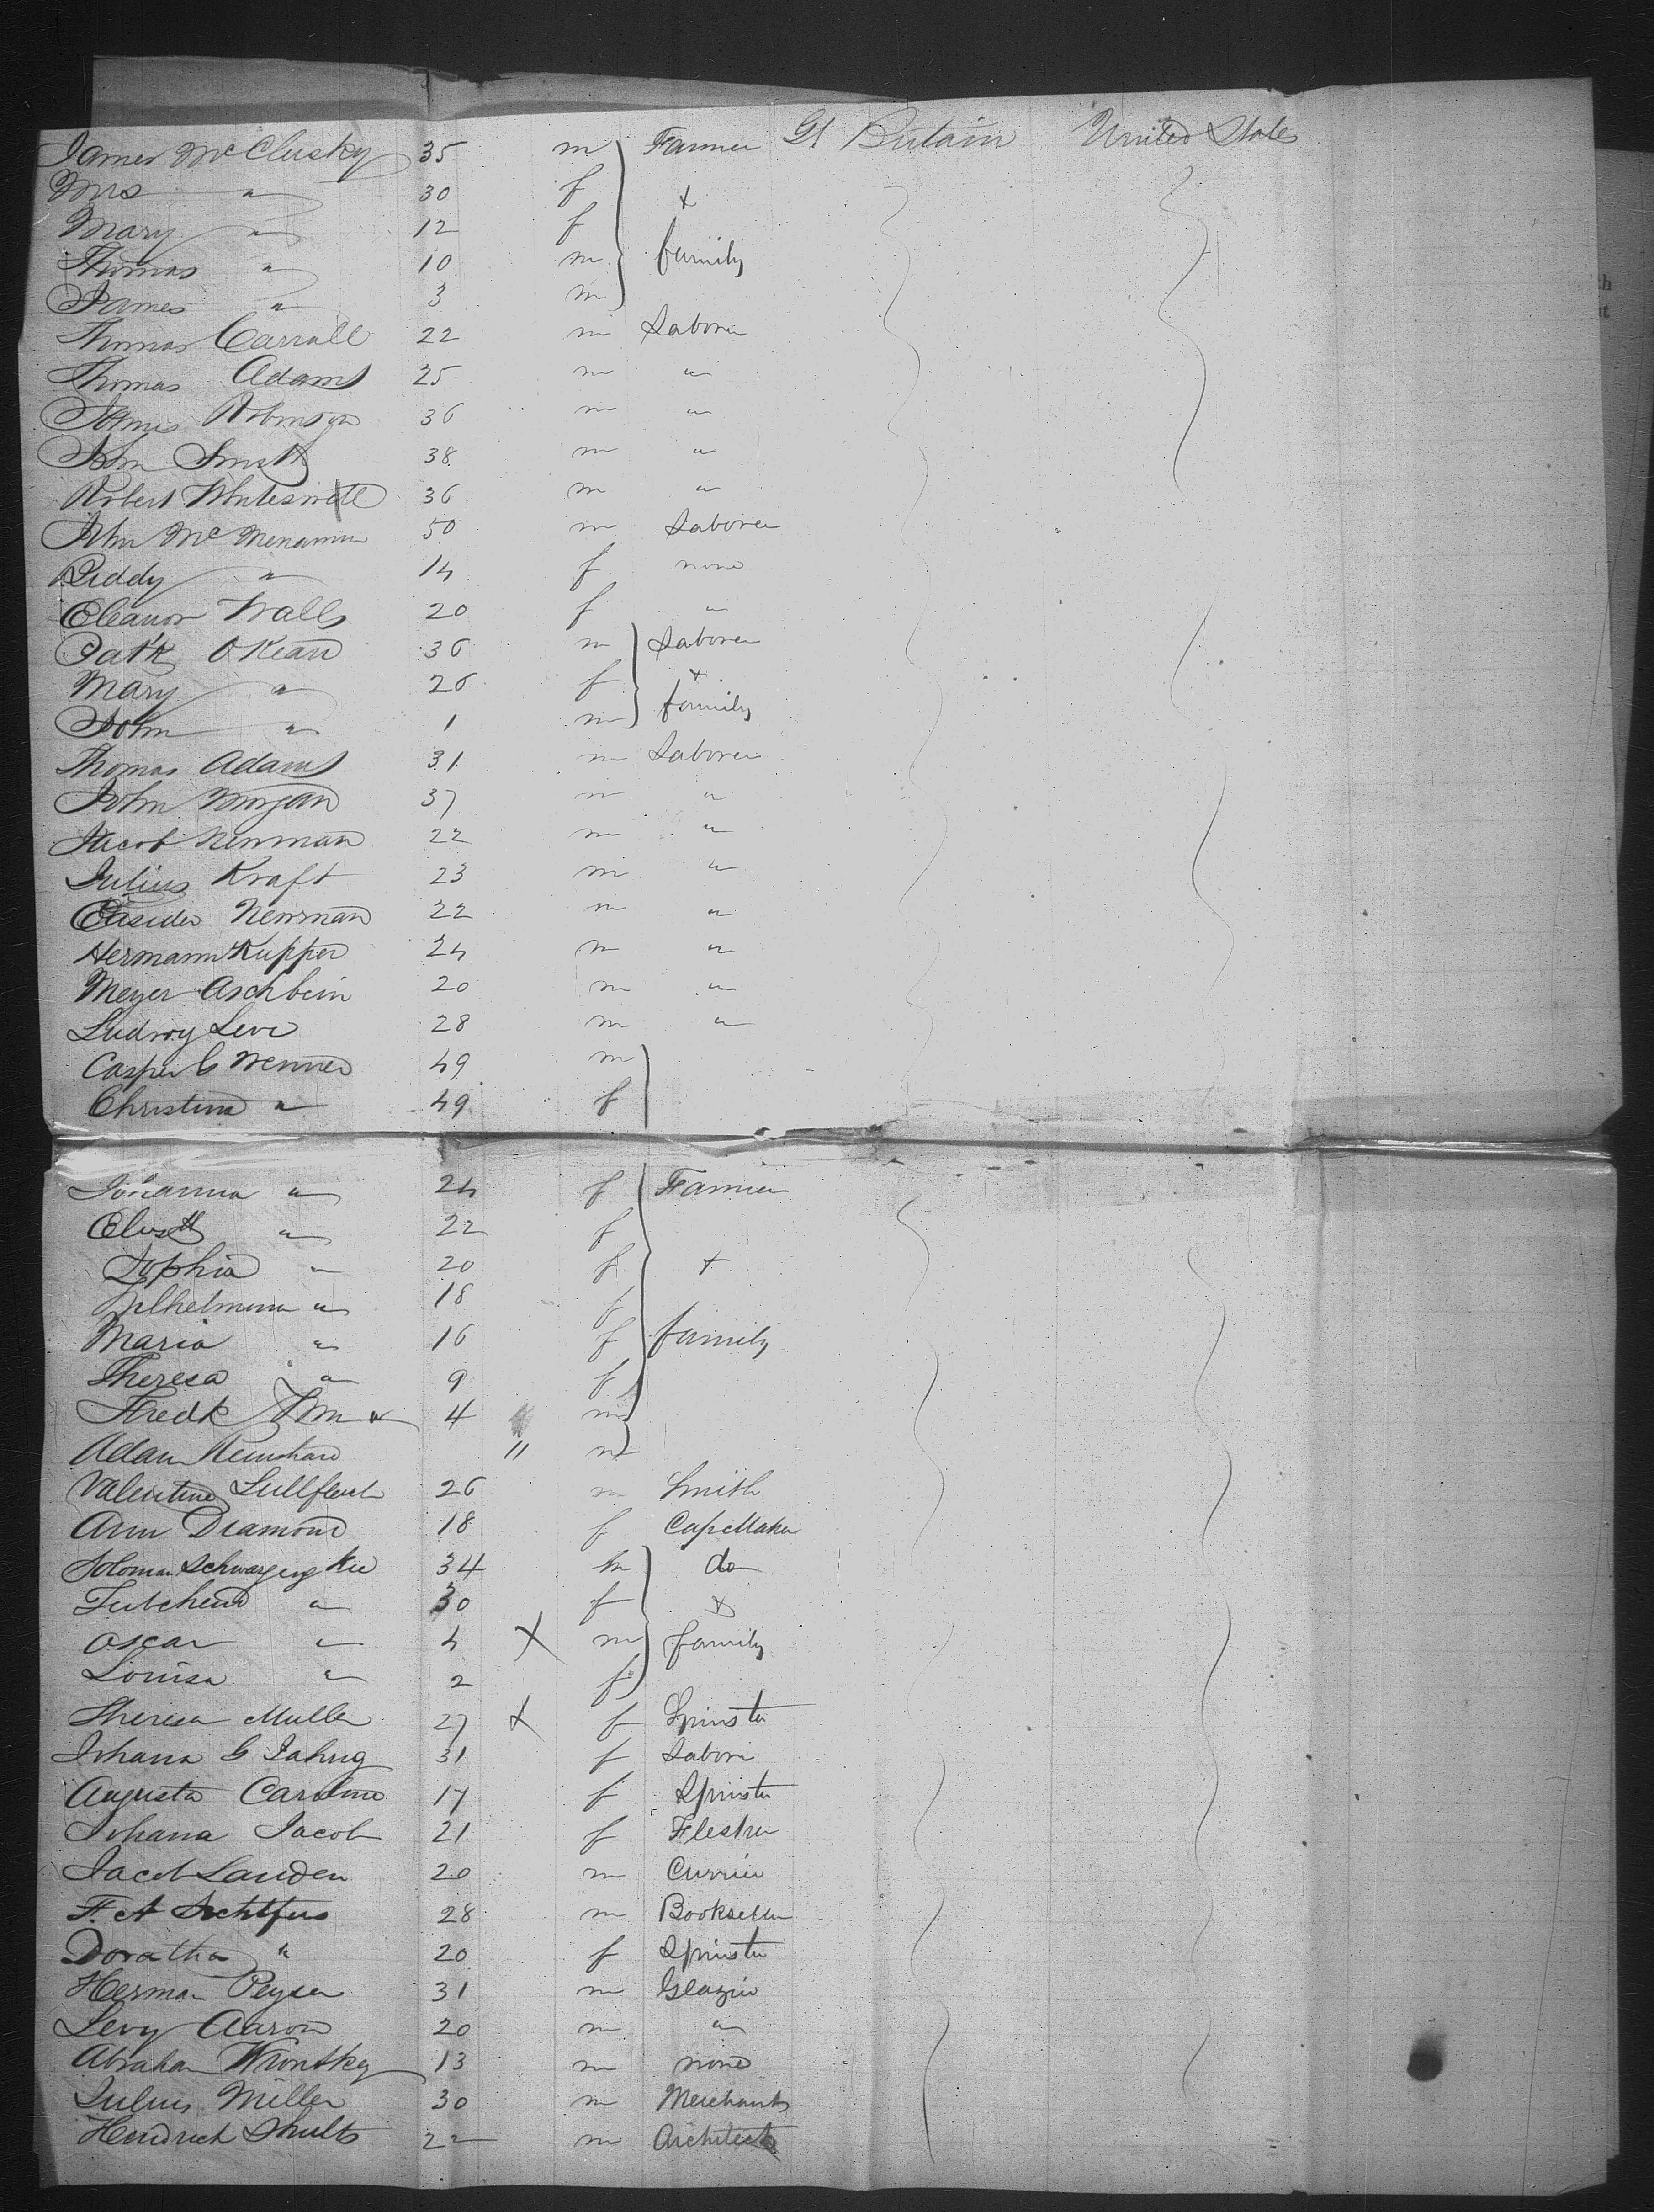 James McClusky 35 m Farmer Gt Britain United States
Mrs " 30 f +
Mary " 12 f family
Thomas " 10 m
James " 3 m
Thomas Carrall 22 m Laborer
Thomas Adams 25 m "
James Robinson 36 m "
John Smith 38 m "
Robert 36 m "
John McMenamin 50 m Laborer
Biddy " 14 f none
Eleanor Walls 20 f "
Patk OKean 36 m Laborer
Mary " 26 f +
John " 1 m family
Thomas Adams 31 m Laborer
John Morgan 37 m "
Jacob Newman 22 m "
Julius Kraft 23 m "
Newman 22 m "
Hermann Kupper 24 m "
Meyer Aschbein 20 m "
Ludwig Levi 28 m "
Casper C Wenner 49 m
Christina " 49 f
Johanna " 24 f Farmer
Elisth " 22 f
Sophia " 20 f +
Wilhelmina " 18 f
Maria " 16 f family
Theresa " 9 f
Fredk Wm " 4 m
Adam Reinhard 11 m
Valentine 26 m Smith
Ann Diamond 18 f CapeMaker
Soloman 34 m do
" 30 f +
Oscar " 4 X m family
Louisa " 2 f
Theresa Muller 27 X f Spinster
Johana G 31 f Labore
Augusta Caroline 17 f Spinster
Johana Jacob 21 f Flesher
Jacob Lauden 20 m Currier
F. A 28 m Bookseller
Doratha " 20 f Spinster
Herman Peyser 31 m Glazier
Levy Aaron 20 m "
Abraham Wronsky 13 m none
Julius Miller 30 m Merchant
Hendrich Shults 22 m Architect